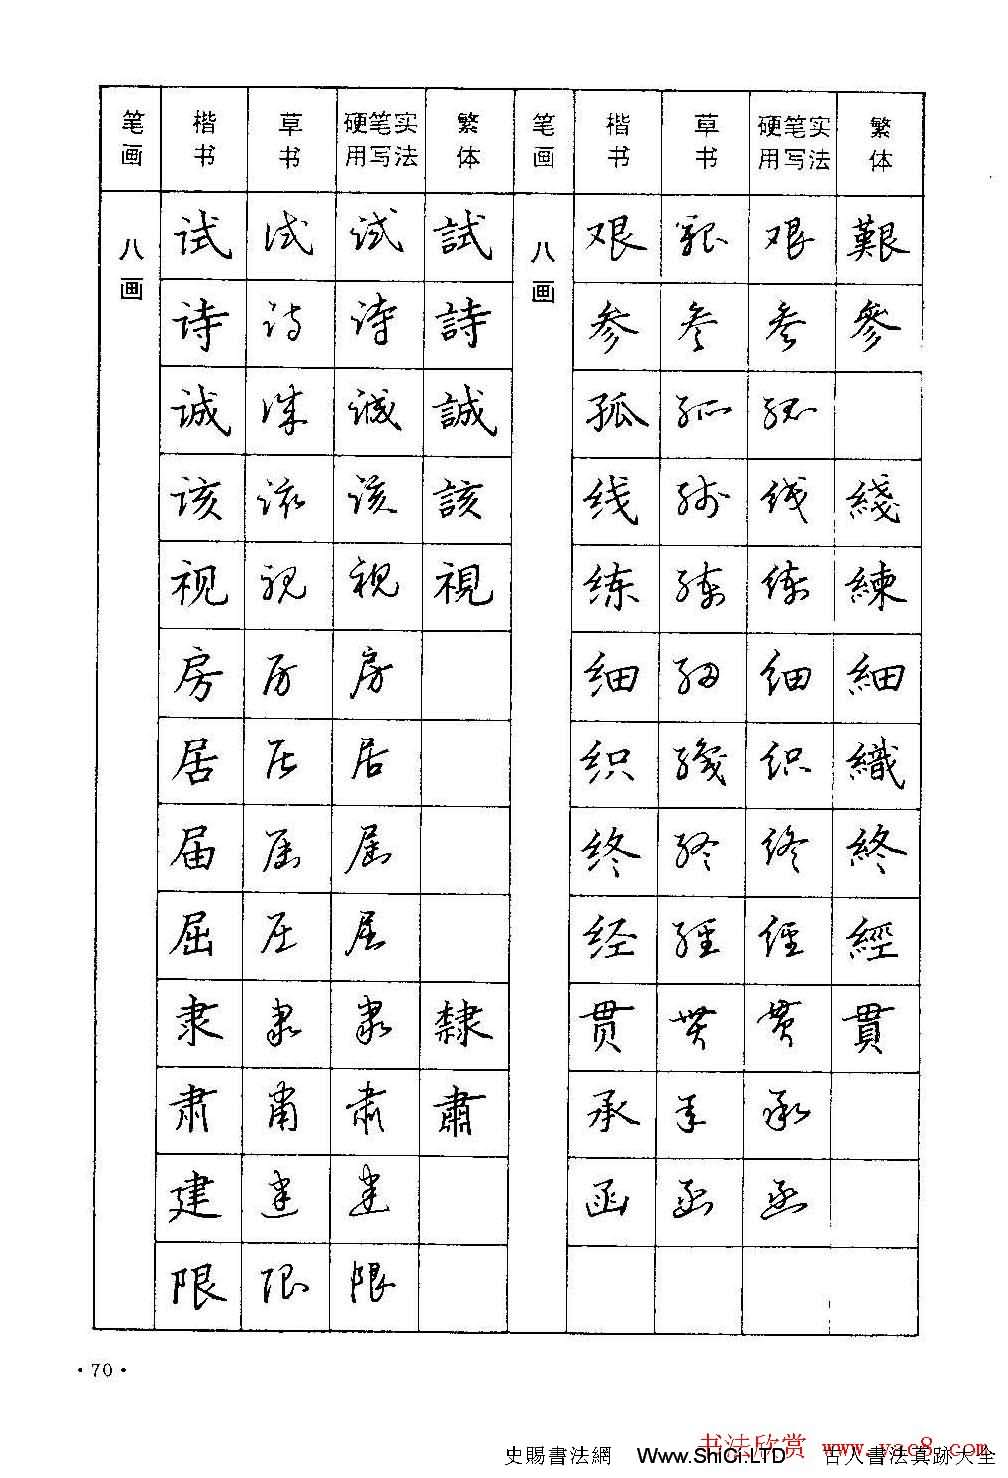 笔画 楷书 草书 硬笔实用写法 繁体 笔画 楷书 草书 硬笔实用写法 繁体
八画 试 试 试 試 八画 艰 艰 艰 艱
诗 诗 诗 詩 参 参 参 參
诚 诚 诚 誠 孤 孤 孤
该 该 该 該 线 线 线 綫
视 视 视 視 练 练 练 練
房 房 房 细 细 细 細
居 居 居 织 织 织 織
届 届 届 终 终 终 終
屈 屈 屈 经 经 经 經
隶 隶 隶 隸 贯 贯 贯 貫
肃 肃 肃 肅 承 承 承
建 建 建 函 函 函
限 限 限
·70·
书法欣赏 www.yac8.com
史賜書法網 Www.ShiCi.LTD 古人書法真跡大全